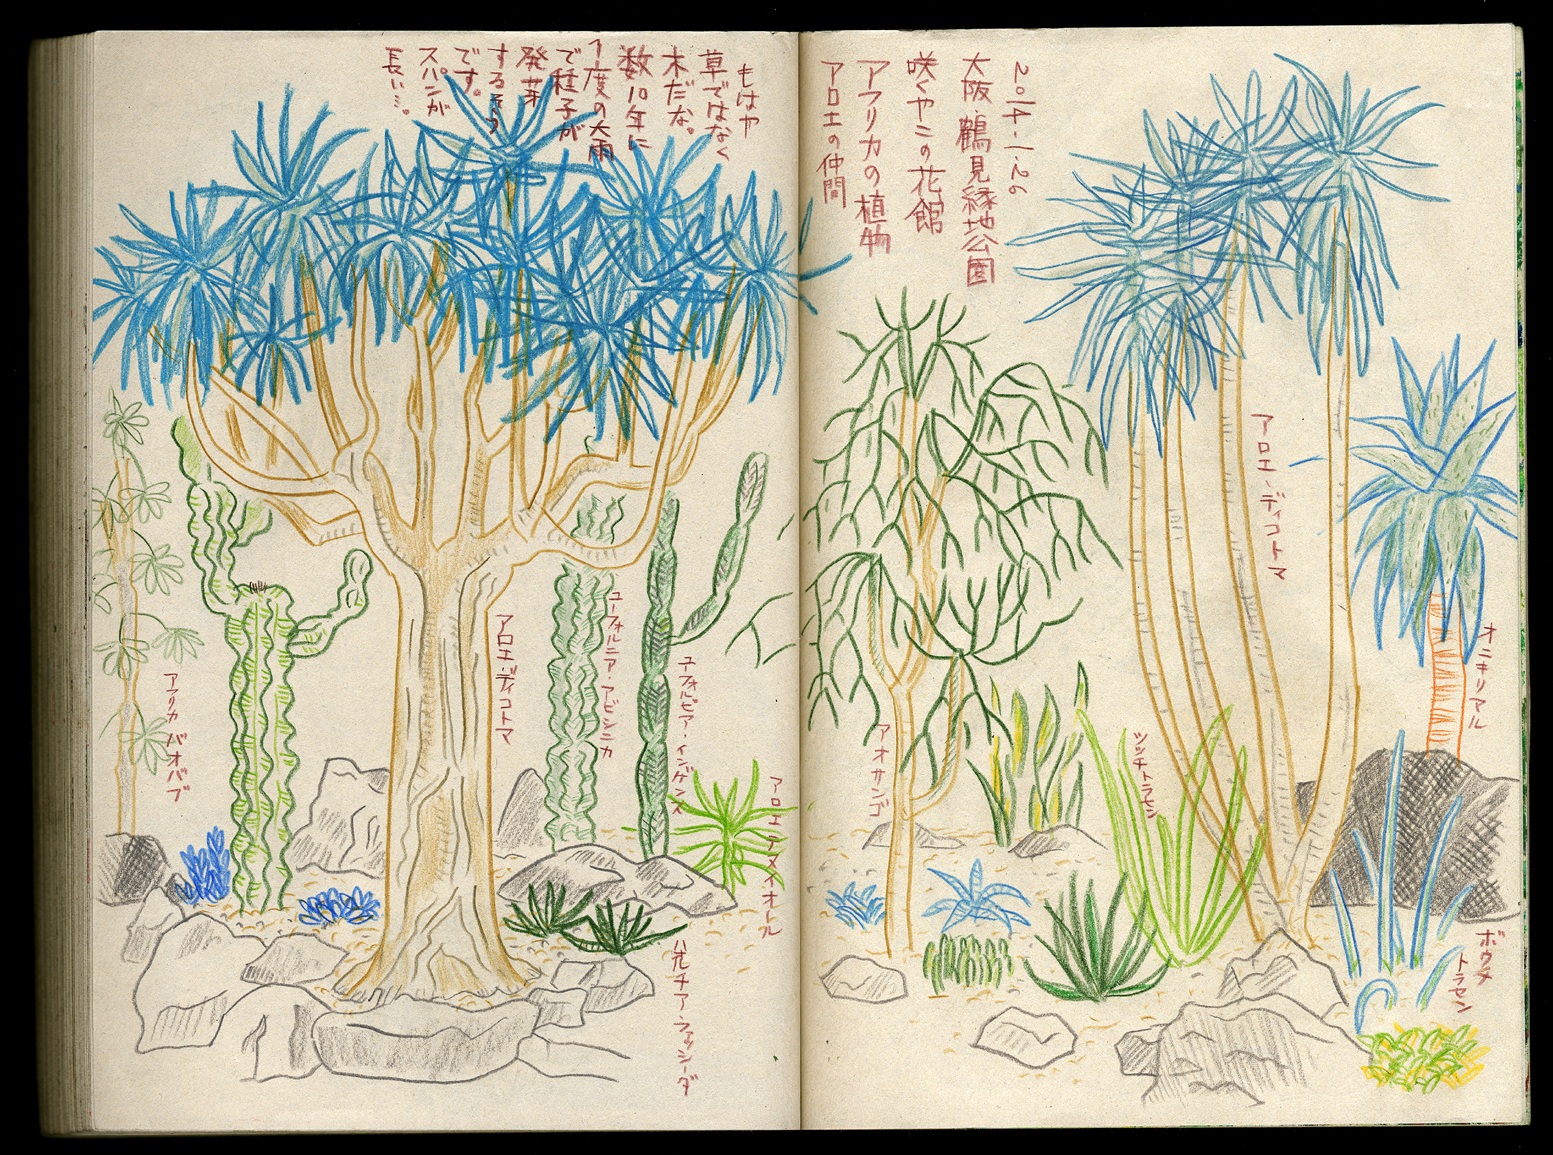 2014.1.26
大阪・鶴見緑地公園
咲くやこの花館
アフリカの植物
アロエの仲間
もはや
草ではなく
木だな。
数10年に
1度の大雨
で種子が
発芽
するそう
です。
スパンが
長い…。
アロエ・ディコトマ
オニキリアル
ツツチトラセン
アオサンゴ
ボウチトラセン
アロエ・ディコトマ
ユーフォルニア・アビシニカ
ユーフォルビア・イングンス
アフリカバオバブ